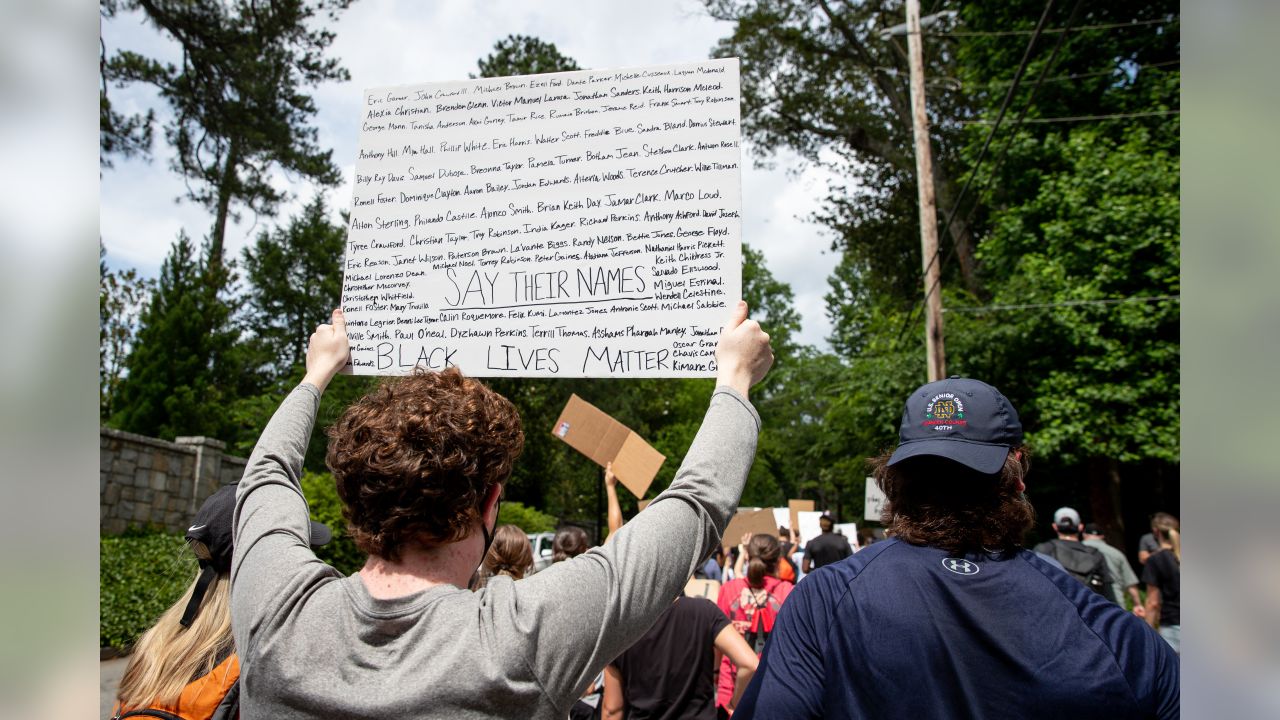 Eric Garner. John Crawford III. Michael Brown. Ezell Ford. Dante Parker. Michelle Cusseaux. Laquan Mcdonald.
Alexia Christian. Brendon Glenn. Victor Manuel Larosa. Jonathan Sanders. Keith Harrison Mcleod.
George Mann. Tanisha Anderson. Akai Gurley. Tamir Rice. Rumain Brisbon. Jerame Reid. Frank Smart. Tony Robinson.
Anthony Hill. Mya Hall. Phillip White. Eric Harris. Walter Scott. Freddie Blue. Sandra Bland. Darrius Stewart.
Billy Ray Davis. Samuel Dubose. Breonna Taylor. Pamela Turner. Botham Jean. Stephon Clark. Antwon Rose II.
Ronell Foster. Dominique Clayton. Aaron Bailey. Jordan Edwards. Alteria Woods. Terence Crutcher. Willie Tillman.
Alton Sterling. Philando Castile. Alonzo Smith. Brian Keith Day. Jamar Clark. Marco Loud.
Tyree Crawford. Christian Taylor. Troy Robinson. India Kager. Richard Perkins. Anthony Ashford. David Joseph
Eric Reason. Janet Wilson. Paterson Brown. La'vante Biggs. Randy Nelson. Bettie Jones. George Floyd.
Michael Lorenzo Dean. Michael Noel. Torrey Robinson. Peter Gaines. Atatiana Jefferson. Nathaniel Harris Pickett.
Christopher Mccorvey. Keith Childress Jr.
Christopher Whitfield. SAY THEIR NAMES Salvado Ellswood.
Miguel Espinal.
Ronell Foster. Wendell Celestine.
Quintonio Legrier. Calin Roquemore. Felix Kumi. Lamontez Jones. Antronie Scott. Michael Sabbie.
ville Smith. Paul O'neal. Drehawn Perkins. Terrill Thomas. Asshams Pharoah Manley. Jonathan
Gaines. Oscar Gran
Edwards. BLACK LIVES MATTER Chavis Car
Kimane G
U.S. SENIOR OPEN
ND
40TH